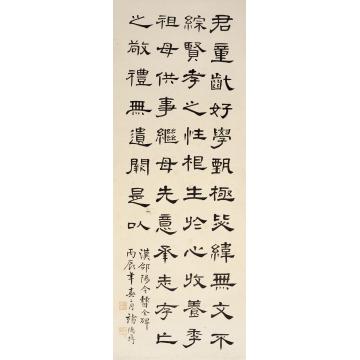 君童齔好學甄極毖緯無文不
綜賢孝之性根生於心收養季
祖母供事繼母先意承志存亡
之敬禮無遺闕是以
漢郃陽令曹全碑
丙辰年春月